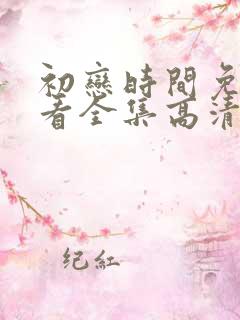 初戀時間免
看全集高清
纪紅